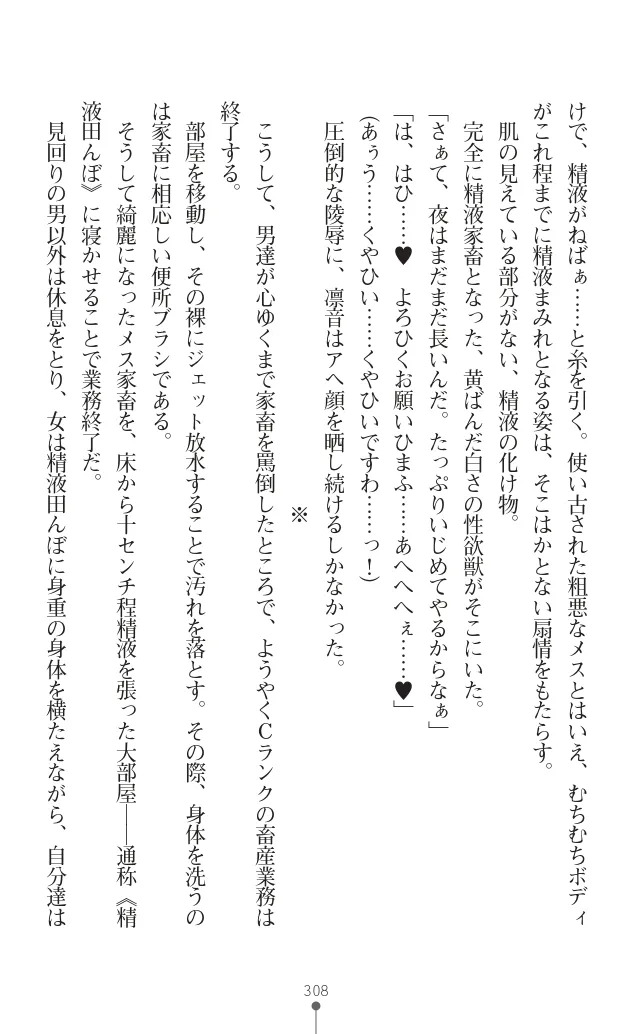 けで、精液がねばぁ……と糸を引く。使い古された粗悪なメスとはいえ、むちむちボディ
がこれ程までに精液まみれとなる姿は、そこはかとない扇情をもたらす。
肌の見えている部分がない、精液の化け物。
完全に精液家畜となった、黄ばんだ白さの性欲獣がそこにいた。
「さぁて、夜はまだまだ長いんだ。たっぷりいじめてやるからなぁ」
「は、はひ……♥　よろひくお願いひまふ……あへへへぇ……♥」
（あぅう……くやひい……くやひいですわ……っ！）
圧倒的な陵辱に、凛音はアヘ顔を晒し続けるしかなかった。
※
こうして、男達が心ゆくまで家畜を罵倒したところで、ようやくＣランクの畜産業務は
終了する。
部屋を移動し、その裸にジェット放水することで汚れを落とす。その際、身体を洗うの
は家畜に相応しい便所ブラシである。
そうして綺麗になったメス家畜を、床から十センチ程精液を張った大部屋――通称《精
液田んぼ》に寝かせることで業務終了だ。
見回りの男以外は休息をとり、女は精液田んぼに身重の身体を横たえながら、自分達は
308